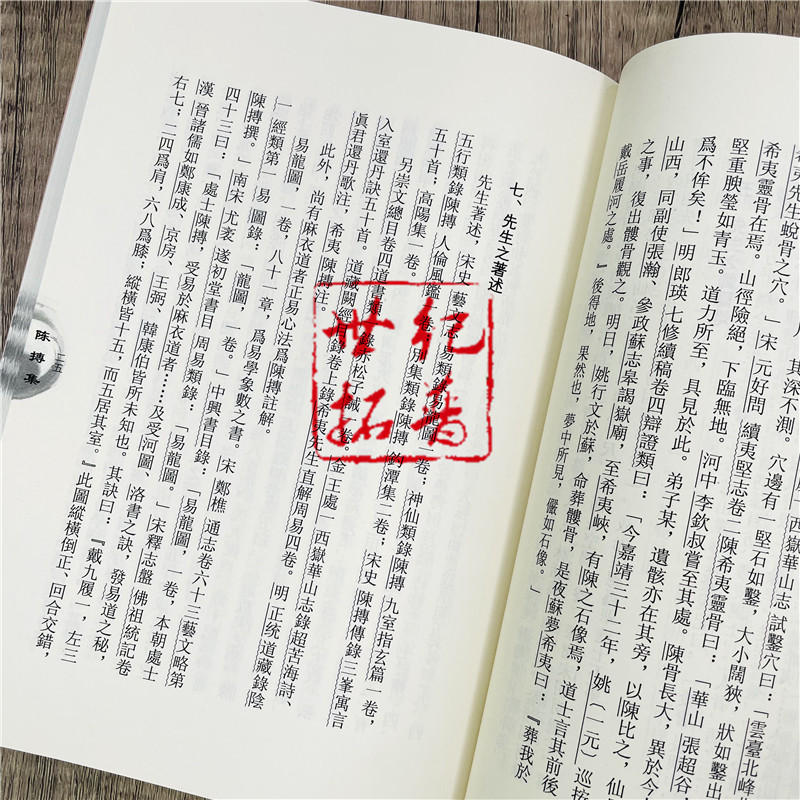 嶽華山志 試鑿穴曰：「雲臺北峰
其深不測。穴邊有一堅石如鑿，大小闊狹，狀如鑿出
希夷先生蛻骨之穴。」宋 元好問 續夷堅志卷二陳希夷靈骨曰：「華山 張超谷
希夷靈骨在焉。山徑險絕，下臨無地。河中 李欽叔嘗至其處。陳骨長大，異於今
堅重腴瑩如青玉。道力所至，具見於此。弟子某，遺骸亦在其旁，以陳比之，仙
爲不侔矣！」明 郎瑛 七修續稿卷四辯證類曰：「今嘉靖三十二年，姚（一元）巡按
山西，同副使張瀚、參政蘇志皋謁嶽廟，至希夷峽，有陳之石像焉，道士言其前後
之事，復出髏骨觀之。明日，姚行文於蘇，命葬髏骨，是夜蘇夢希夷曰：『葬我於
戴岳履河之處。』後得地，果然也，夢中所見，儼如石像。」
七、先生之著述
先生著述，宋史 藝文志 易類錄易龍圖一卷；神仙類錄陳摶 九室指玄篇一卷，
五行類錄陳摶 人倫風鑑一卷，別集類錄陳摶 釣潭集二卷；宋史 陳摶傳錄三峯寓言
五十首；高陽集一卷。
另崇文總目卷四道書類錄赤松子誡一卷。金 王處一 西嶽華山志錄超苦海詩、
入室還丹訣五十首。道藏闕經目錄卷上錄希夷先生直解周易四卷。明 正統道藏錄陰
眞君還丹歌注，希夷 陳摶注。
此外，尚有麻衣道者正易心法爲陳摶註解。
易龍圖，一卷，八十一章，爲易學象數之書。宋 鄭樵 通志卷六十三藝文略第
一 經類第一 易 圖錄：「龍圖，一卷。」中興書目錄：「易龍圖，一卷，本朝處士
陳摶撰。」南宋 尤袤 遂初堂書目 周易類錄：「易龍圖。」宋釋志磐 佛祖統記卷
四十三曰：「處士陳摶，受易於麻衣道者……及受河圖、洛書之訣，發易道之秘，
漢 晉諸儒如鄭康成、京房、王弼、韓康伯皆所未知也。其訣曰：『戴九履一，左三
右七；二四爲肩，六八爲膝；縱橫皆十五，而五居其室。』此圖縱橫倒正、回合交錯，
二五
陈抟集
世纪拓普